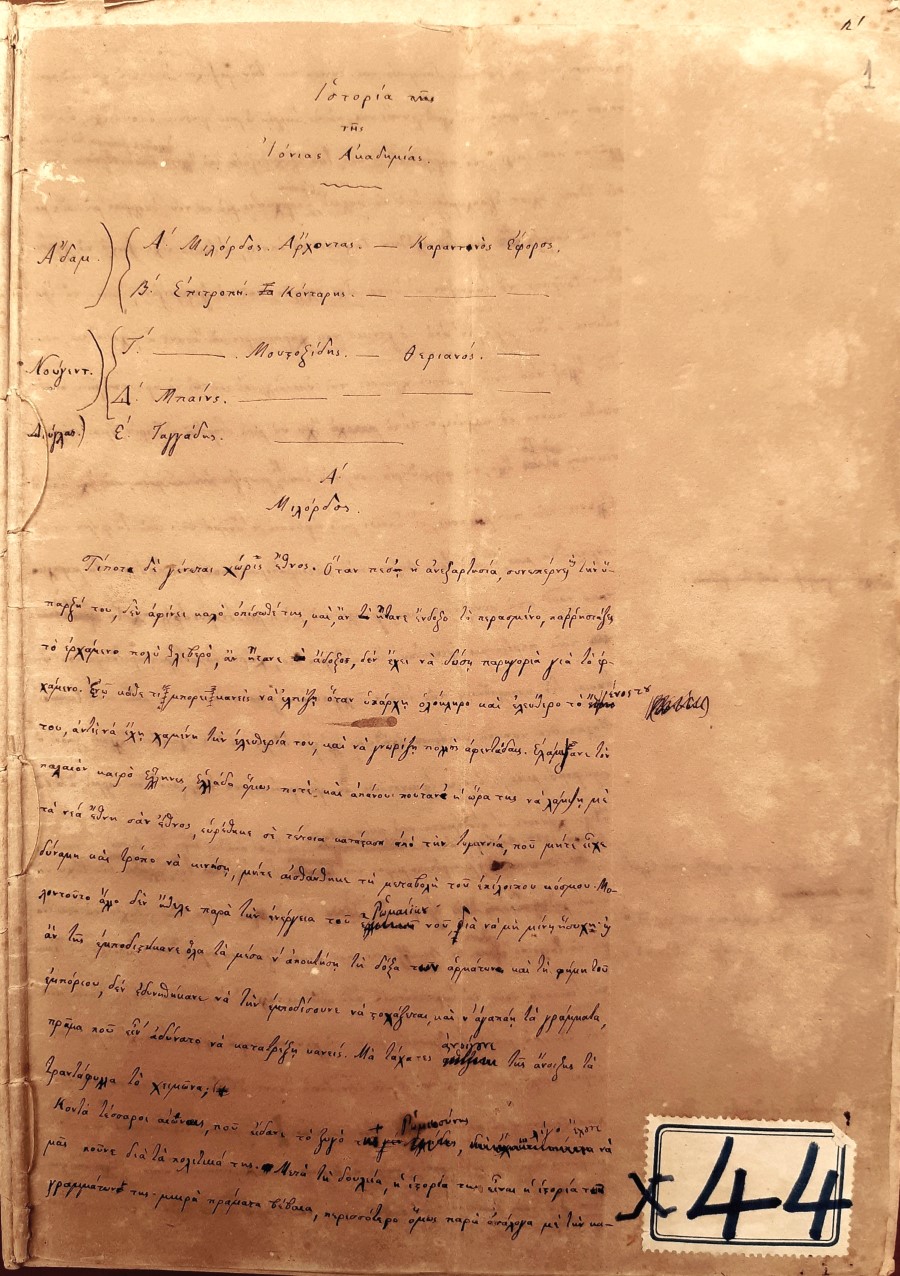 1
Ἱστορία της
τῆς
Ἰόνιας Ἀκαδημίας.
Ἄδαμ. Α΄ Μιλόρδος. Ἄρχοντας. — Καραντινὸς Ἔφορος.
Β΄. Ἐπιτροπή. Κόνταρης. — —
Νούγεντ. Γ΄. — . Μουστοξίδης. — Θεριανός. —
Δ΄. Μπαίνς. — — — —
Δούγλας. Ε΄. Ταγγάδης. —
Α΄
Μιλόρδος.
Τίποτα δὲ γένεται χωρὶς ἔθνος. Ὅταν πέσῃ ἡ ἀνεξαρτησία, συνεπέρνει τὴν ὕ-
παρξή του, δὲν ἀφίνει καλὸ ὀπίσωθέ της, καὶ, ἂν ἤτανε ἔνδοξο τὸ περασμένο, παρρησιάζει
τὸ ἐρχάμενο πολὺ θλιβερό, ἂν ἤτανε ἄδοξο, δὲν ἔχει νὰ δώσῃ παρηγοριὰ γιὰ τὸ ἐρ-
χάμενο. κάθε τι μπορεῖ κανεὶς νὰ ἐλπίζῃ ὅταν ὑπάρχῃ ὁλόκληρο καὶ ἐλεύθερο τὸ γένος του
του, ἀντὶς νὰ ἔχῃ χαμένη τὴν ἐλευθερία του, καὶ νὰ γνωρίζῃ πολλοὺς ἀφεντάδαις. Ἐλάμψανε τὸν
παλαιὸν καιρὸ Ἕλληνες, Ἑλλάδα ὅμως ποτέ· καὶ ἀπάνου ποὖτανε ἡ ὥρα της νὰ λάμψῃ μὲ
τὰ νέα ἔθνη σὰν ἔθνος, εὑρέθηκε σὲ τέτοια κατάσταση ἀπὸ τὴν τυραννία, ποῦ μήτε εἶχε
δύναμη καὶ τρόπο νὰ κινήσῃ, μήτε αἰσθάνθηκε τὴ μεταβολὴ τοῦ ἐπίλοιπου κόσμου. Μο-
λοντοῦτο ἄλλο δὲν ἤθελε παρὰ τὴν ἐνέργεια τοῦ Ῥωμαίικου νοῦ, διὰ νὰ μὴ μένῃ ἥσυχη· ἢ
ἂν τῆς ἐμποδίσανε ὅλα τὰ μέσα ν' ἀποκτήσῃ τὴ δόξα τῶν ἁρμάτωνε καὶ τὴ φήμη τοῦ
ἐμπόριου, δὲν ἐδυνηθήκανε νὰ τὴν ἐμποδίσουνε νὰ στοχάζεται, καὶ ν' ἀγαπάῃ τὰ γράμματα,
πρᾶμα ποῦ εἶν' ἀδύνατο νὰ κατατρέξῃ κανείς. Μὰ τάχατες ἀνοίγνε τῆς ἄνοιξης τὰ
τραντάφυλλα τὸ χειμῶνα;
Κοντὰ τέσσαροι αἰῶνες, ποῦ εἶδανε τὸ ζυγὸ τῆς Ῥωμιοσύνης, λίγο ἔχουνε νὰ
μᾶς ποῦνε διὰ τὰ πολιτικά της. Μετὰ τὴ δουλεία, ἡ ἱστορία της εἶναι ἡ ἱστορία τῶν
γραμμάτωνέ της· μικρὰ πράματα βέβαια, περισσότερο ὅμως παρὰ ἀνάλογα μὲ τὴν κα-
x 44